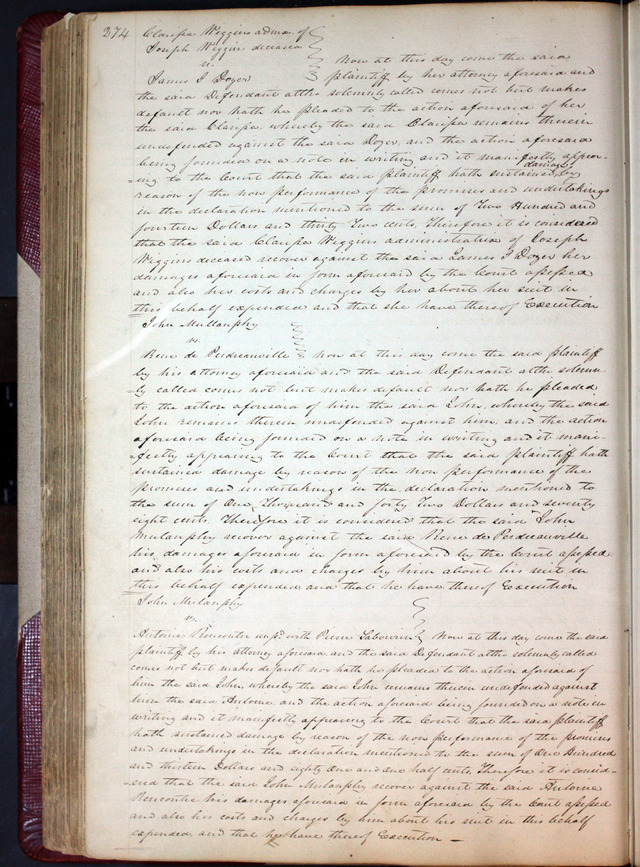 274 Clarissa Wiggins admx. of
Joseph Wiggins deceased
vs
Now at this day come the said
James J Doyer plaintiff by her attorney aforesaid and
the said Defendant altho solemnly called comes not but makes
default nor hath he pleaded to the action aforesaid of her
the said Clarissa, whereby the said Clarissa remains therein
undefended against the said Doyer, and the action aforesaid
being founded on a note in writing and it manifestly appear-
damages
-ing to the Court that the said plaintiff hath sustained by
reason of the non performance of the promises and undertakings
in the declaration mentioned to the sum of Two Hundred and
fourteen Dollars and thirty Two cents, Therefore it is considered
that the said Clarissa Wiggins administratrix of Joseph
Wiggins deceased recover against the said James J Doyer her
damages aforesaid in form aforesaid by the Court assessed
and also her costs and charges by her about her suit in
this behalf expended and that she have thereof Execution
John Mullanphy
vs.
Rene de Perdreauville Now at this day come the said plaintiff
by his attorney aforesaid and the said Defendant altho solemn-
-ly called comes not but makes default nor hath he pleaded
to the action aforesaid of him the said John, whereby the said
John remains therein undefended against him, and the action
aforesaid being founded on a note in writing and it mani-
-festly appearing to the Court that the said plaintiff hath
sustained damage by reason of the non performance of the
promises and undertakings in the declaration mentioned to
the sum of One Thousand and forty Two Dollars and seventy
eight cents. Therefore it is considered that the said John
Mulanphy recover against the said Rene de Perdreauville
his damages aforesaid in form aforesaid by the Court assessed
and also his costs and charges by him about his suit in
this behalf expended and that he have thereof Execution
John Mulanphy
vs.
Antoine Rencontre impd. with Pierre Now at this day come the said
plaintiff by his attorney aforesaid and the said Defendant altho solemnly called
comes not but makes default nor hath he pleaded to the action aforesaid of
him the said John, whereby the said John remains therein undefended against
him the said Antoine and the action aforesaid being founded on a note in
writing and it manifestly appearing to the Court that the said plaintiff
hath sustained damage by reason of the non performance of the promises
and undertakings in the declaration mentioned to the sum of One Hundred
and thirteen Dollars and eighty One and one half cents, Therefore it is consid-
-ered that the said John Mulanphy recover against the said Antoine
Rencontre his damages aforesaid in form aforesaid by the Court assessed
and also his costs and charges by him about his suit in this behalf
expended and that he have thereof Execution —